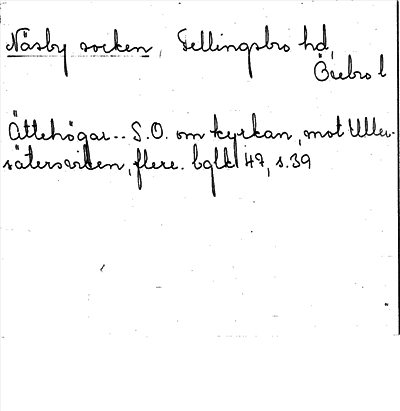 Näsby socken, Fellingsbro hd,
Örebro l
Ättehögar.. S.O. om kyrkan, mot Uller-
sätersviken, flere. bglk 47, s.39